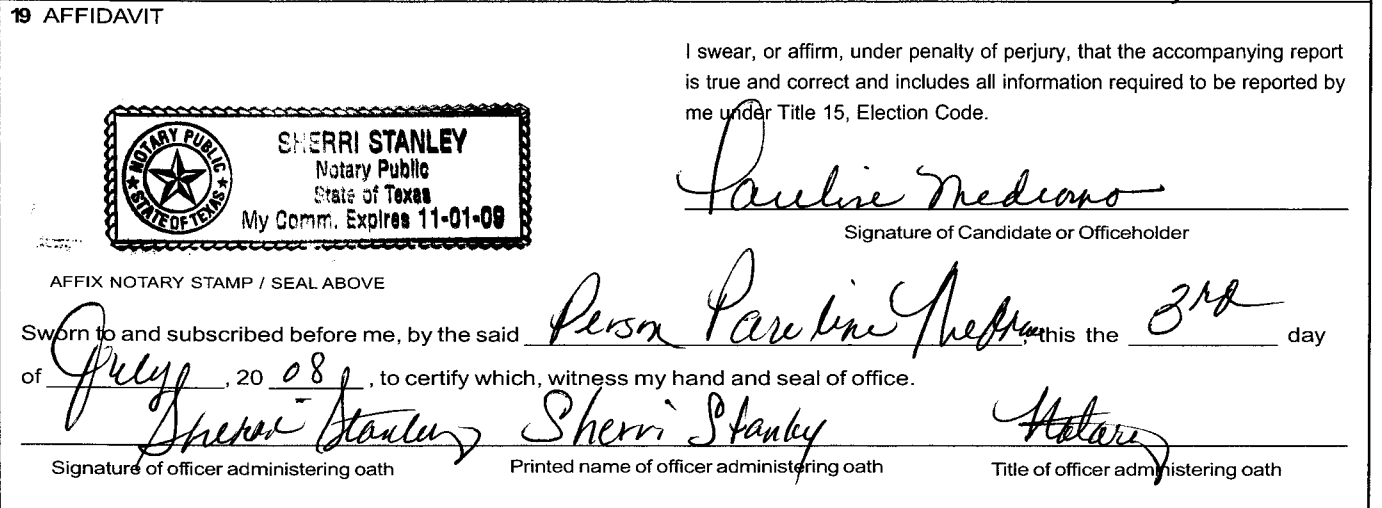 19 AFFIDAVIT
I swear, or affirm, under penalty of perjury, that the accompanying report
is true and correct and includes all information required to be reported by
me under Title 15, Election Code.
NOTARY PUBLIC
STATE OF TEXAS
SHERRI STANLEY
Notary Public
State of Texas
My Comm. Expires 11-01-09
Pauline Medrano
Signature of Candidate or Officeholder
AFFIX NOTARY STAMP / SEAL ABOVE
Sworn to and subscribed before me, by the said Person Pauline Medrano, this the 3rd day
of July, 20 08, to certify which, witness my hand and seal of office.
Sherri Stanley Sherri Stanley Notary
Signature of officer administering oath Printed name of officer administering oath Title of officer administering oath